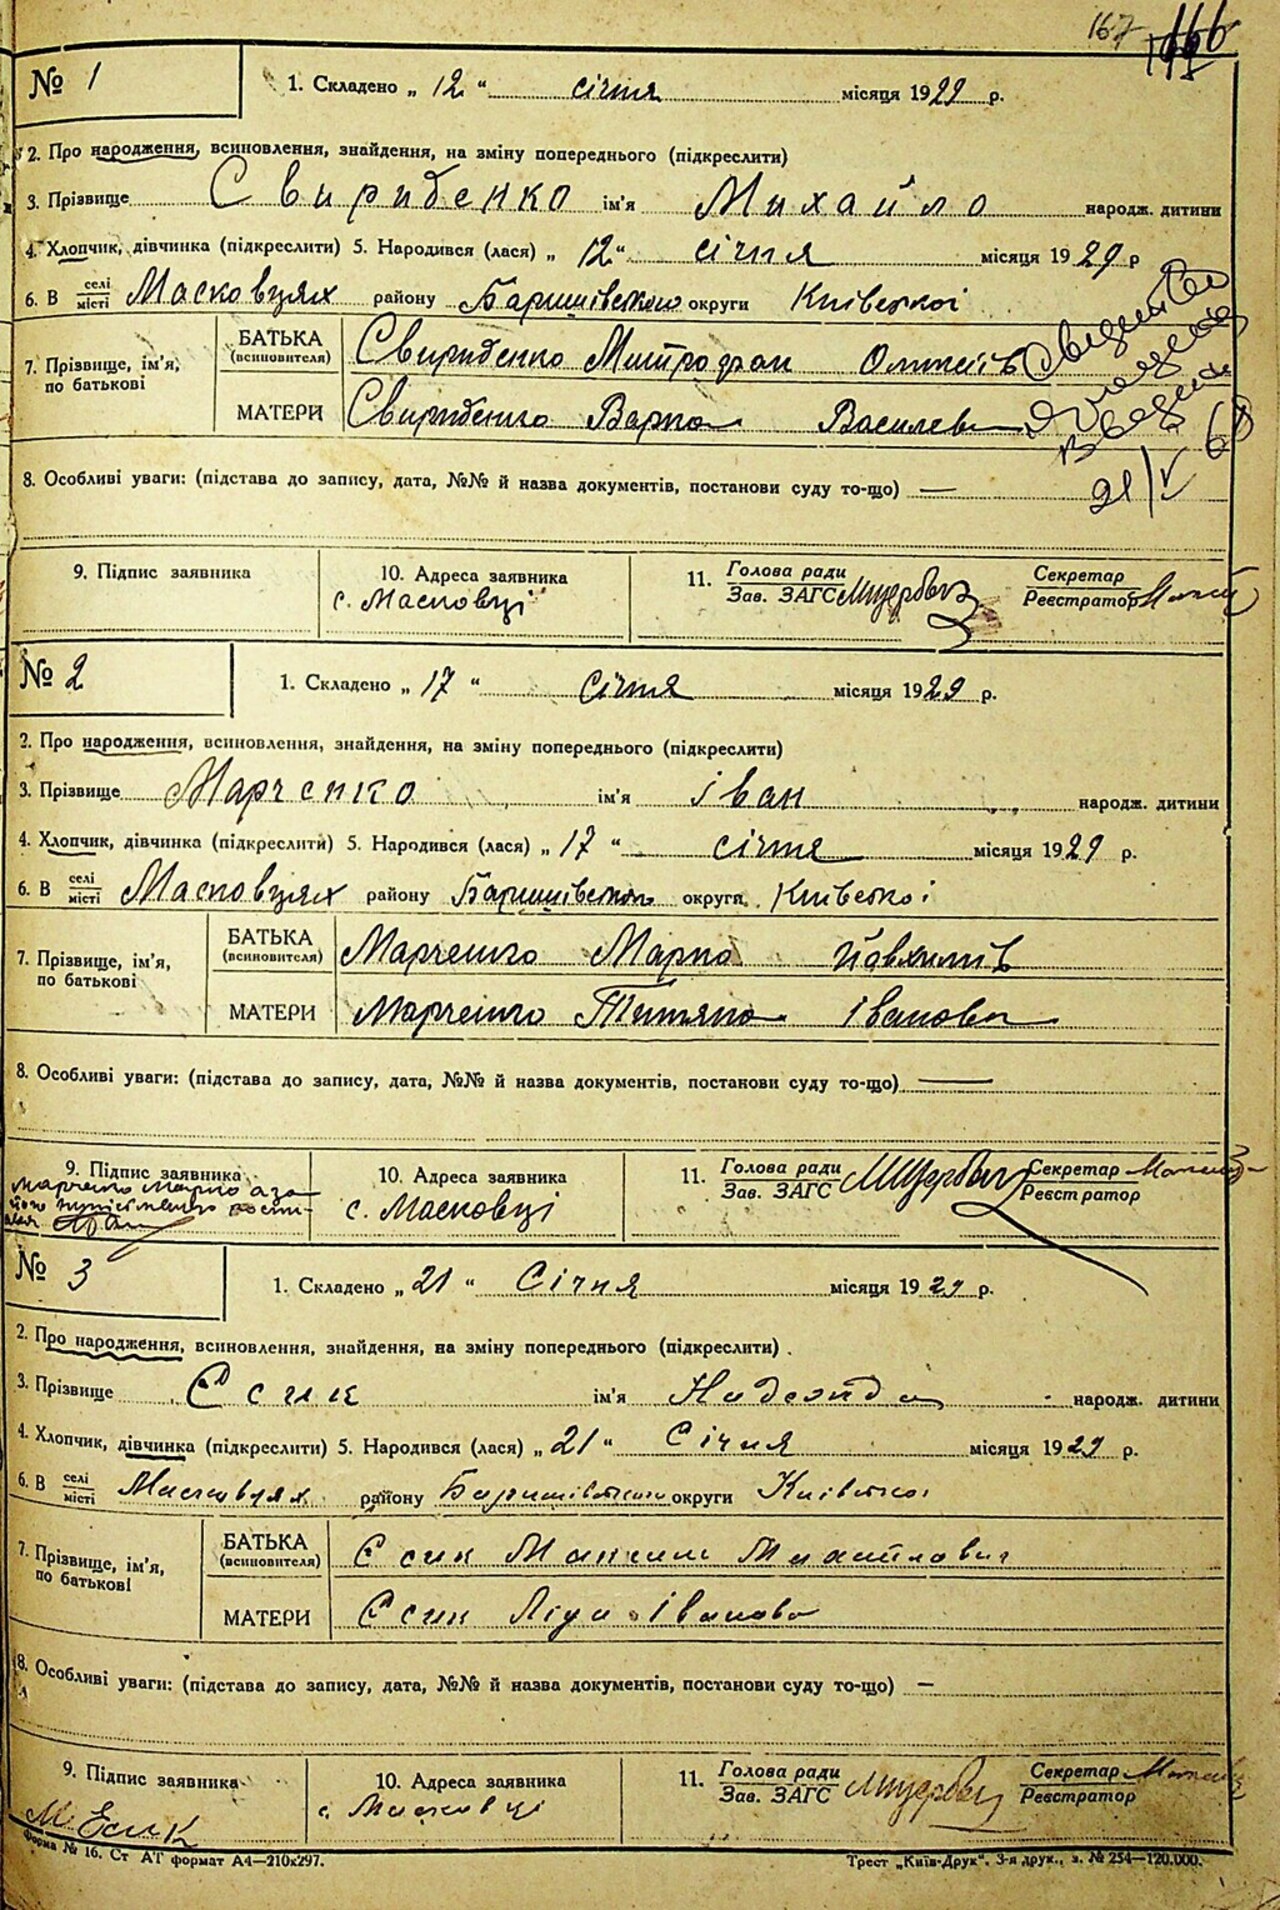 167 166
№ 1 1. Складено „ 12 “ січня місяця 1929 р.
2. Про народження, всиновлення, знайдення, на зміну попереднього (підкреслити)
3. Прізвище Свириденко ім'я Михайло народж. дитини
4. Хлопчик, дівчинка (підкреслити) 5. Народився (лася) „ 12 “ січня місяця 1929 р
6. В селі місті Масковцях району Баришівського округи Київської
7. Прізвище, ім'я, по батькові
БАТЬКА (всиновителя) Свириденко Митрофан Олексіїв
МАТЕРИ Свириденко Варка Василева
21/V 60
8. Особливі уваги: (підстава до запису, дата, №№ й назва документів, постанови суду то-що) —
9. Підпис заявника 10. Адреса заявника 11. Голова ради Зав. ЗАГС Секретар Реєстратор
с. Масковці
№ 2 1. Складено „ 17 “ січня місяця 1929 р.
2. Про народження, всиновлення, знайдення, на зміну попереднього (підкреслити)
3. Прізвище Марченко ім'я Іван народж. дитини
4. Хлопчик, дівчинка (підкреслити) 5. Народився (лася) „ 17 “ січня місяця 1929 р.
6. В селі місті Масковцях району Баришівського округи Київської
7. Прізвище, ім'я, по батькові
БАТЬКА (всиновителя) Марченко Марко
МАТЕРИ Марченко Титяна Іванова
8. Особливі уваги: (підстава до запису, дата, №№ й назва документів, постанови суду то-що) —
9. Підпис заявника 10. Адреса заявника 11. Голова ради Зав. ЗАГС Секретар Реєстратор
Марченко Марко а за
його
с. Масковці
№ 3 1. Складено „ 21 “ Січня місяця 1929 р.
2. Про народження, всиновлення, знайдення, на зміну попереднього (підкреслити)
3. Прізвище Єсик ім'я Надежда народж. дитини
4. Хлопчик, дівчинка (підкреслити) 5. Народився (лася) „ 21 “ Січня місяця 1929 р.
6. В селі місті Масковцях району Баришівського округи Київської
7. Прізвище, ім'я, по батькові
БАТЬКА (всиновителя) Єсик Максим Михайлович
МАТЕРИ Єсик Ліда Іванова
8. Особливі уваги: (підстава до запису, дата, №№ й назва документів, постанови суду то-що) —
9. Підпис заявника 10. Адреса заявника 11. Голова ради Зав. ЗАГС Секретар Реєстратор
М Есик
с. Масковці
Форма № 16. Ст АТ формат А4—210х297. Трест „Київ-Друк“. 3-я друк., з. № 254—120.000.